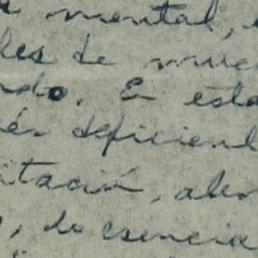 mental,
les de mue
ndo. En esta
és deficient
itación, ales
, la esencia